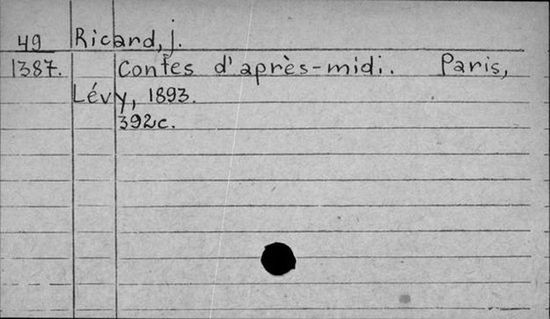 49 Ricard, j.
1387. Contes d'après-midi. Paris,
Lévy, 1893.
392c.